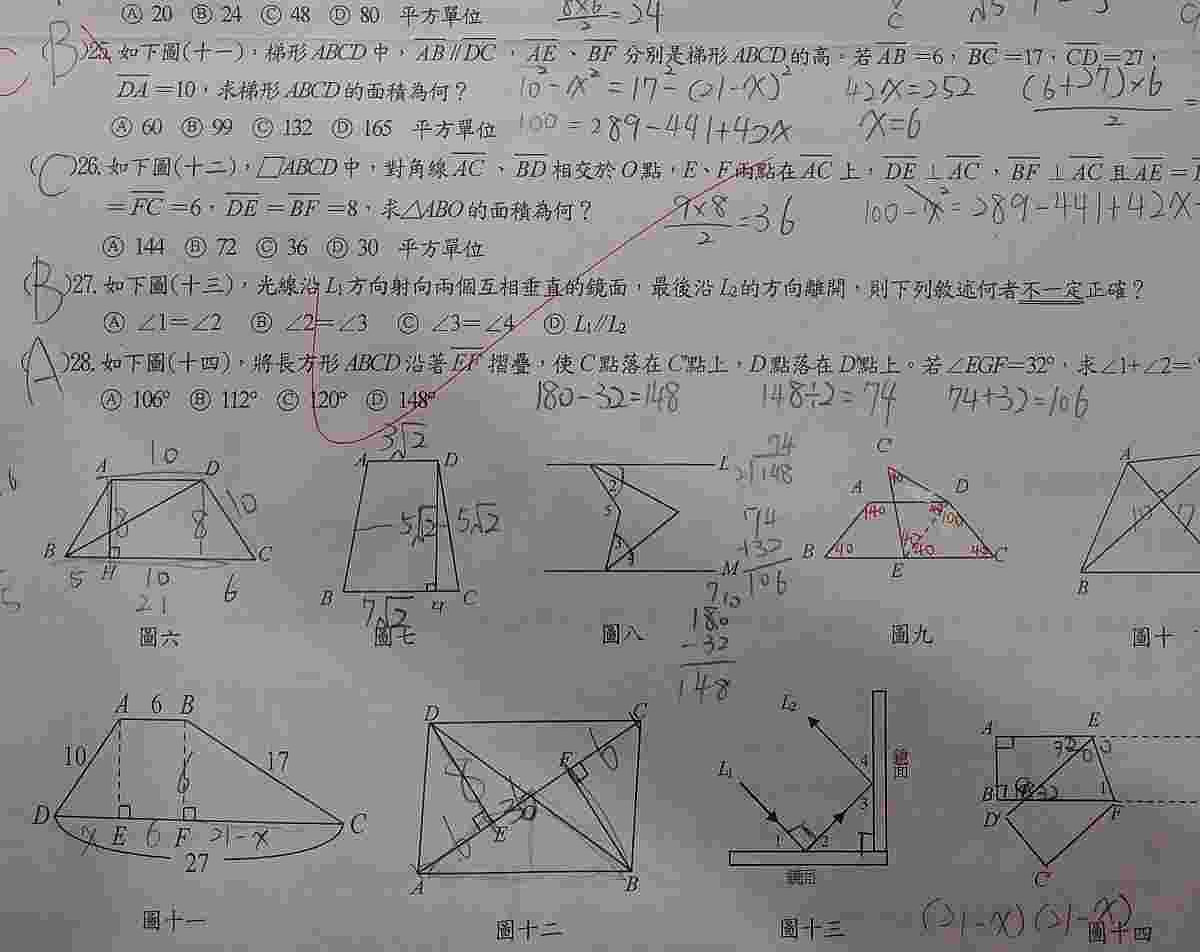 Ⓐ 20 Ⓑ 24 Ⓒ 48 Ⓓ 80 平方單位
8×6/2=24
(B)25. 如下圖(十一)，梯形ABCD中，AB∥DC，AE、BF分別是梯形ABCD的高。若AB=6，BC=17，CD=27，
DA=10，求梯形ABCD的面積為何？
10²-x²=17²-(21-x)² 42x=252 (6+27)×6/2=
Ⓐ 60 Ⓑ 99 Ⓒ 132 Ⓓ 165 平方單位
100=289-441+42x x=6
(C)26. 如下圖(十二)，▱ABCD中，對角線AC、BD相交於O點，E、F兩點在AC上，DE⊥AC、BF⊥AC且AE=
=FC=6，DE=BF=8，求△ABO的面積為何？
9×8/2=36 100-x²=289-441+42x-
Ⓐ 144 Ⓑ 72 Ⓒ 36 Ⓓ 30 平方單位
(B)27. 如下圖(十三)，光線沿L₁方向射向兩個互相垂直的鏡面，最後沿L₂的方向離開，則下列敘述何者不一定正確？
Ⓐ ∠1=∠2 Ⓑ ∠2=∠3 Ⓒ ∠3=∠4 Ⓓ L₁∥L₂
(A)28. 如下圖(十四)，將長方形ABCD沿著EF摺疊，使C點落在C'點上，D點落在D'點上。若∠EGF=32°，求∠1+∠2=
Ⓐ 106° Ⓑ 112° Ⓒ 120° Ⓓ 148°
180-32=148 148÷2=74 74+32=106
10 A D 10 8 8 B H C 5 10 6 21
圖六
3√2 A D 5√2 5√2 B C 7√2
圖七
L 2 5 3 4 M
圖八
74 2 148
74 +32 106
710 180 -32 148
C A D 140 100 B 40 40 40 C E
圖九
A B
圖十
A 6 B 10 17 6 D x E 6 F 21-x C 27
圖十一
D C F 6 8 O E 6 A B
圖十二
L₂ L₁ 1 2 3 4 鏡面 鏡面
圖十三
A E 32 B 1 D' F C'
(21-x)(21-x)
圖十四